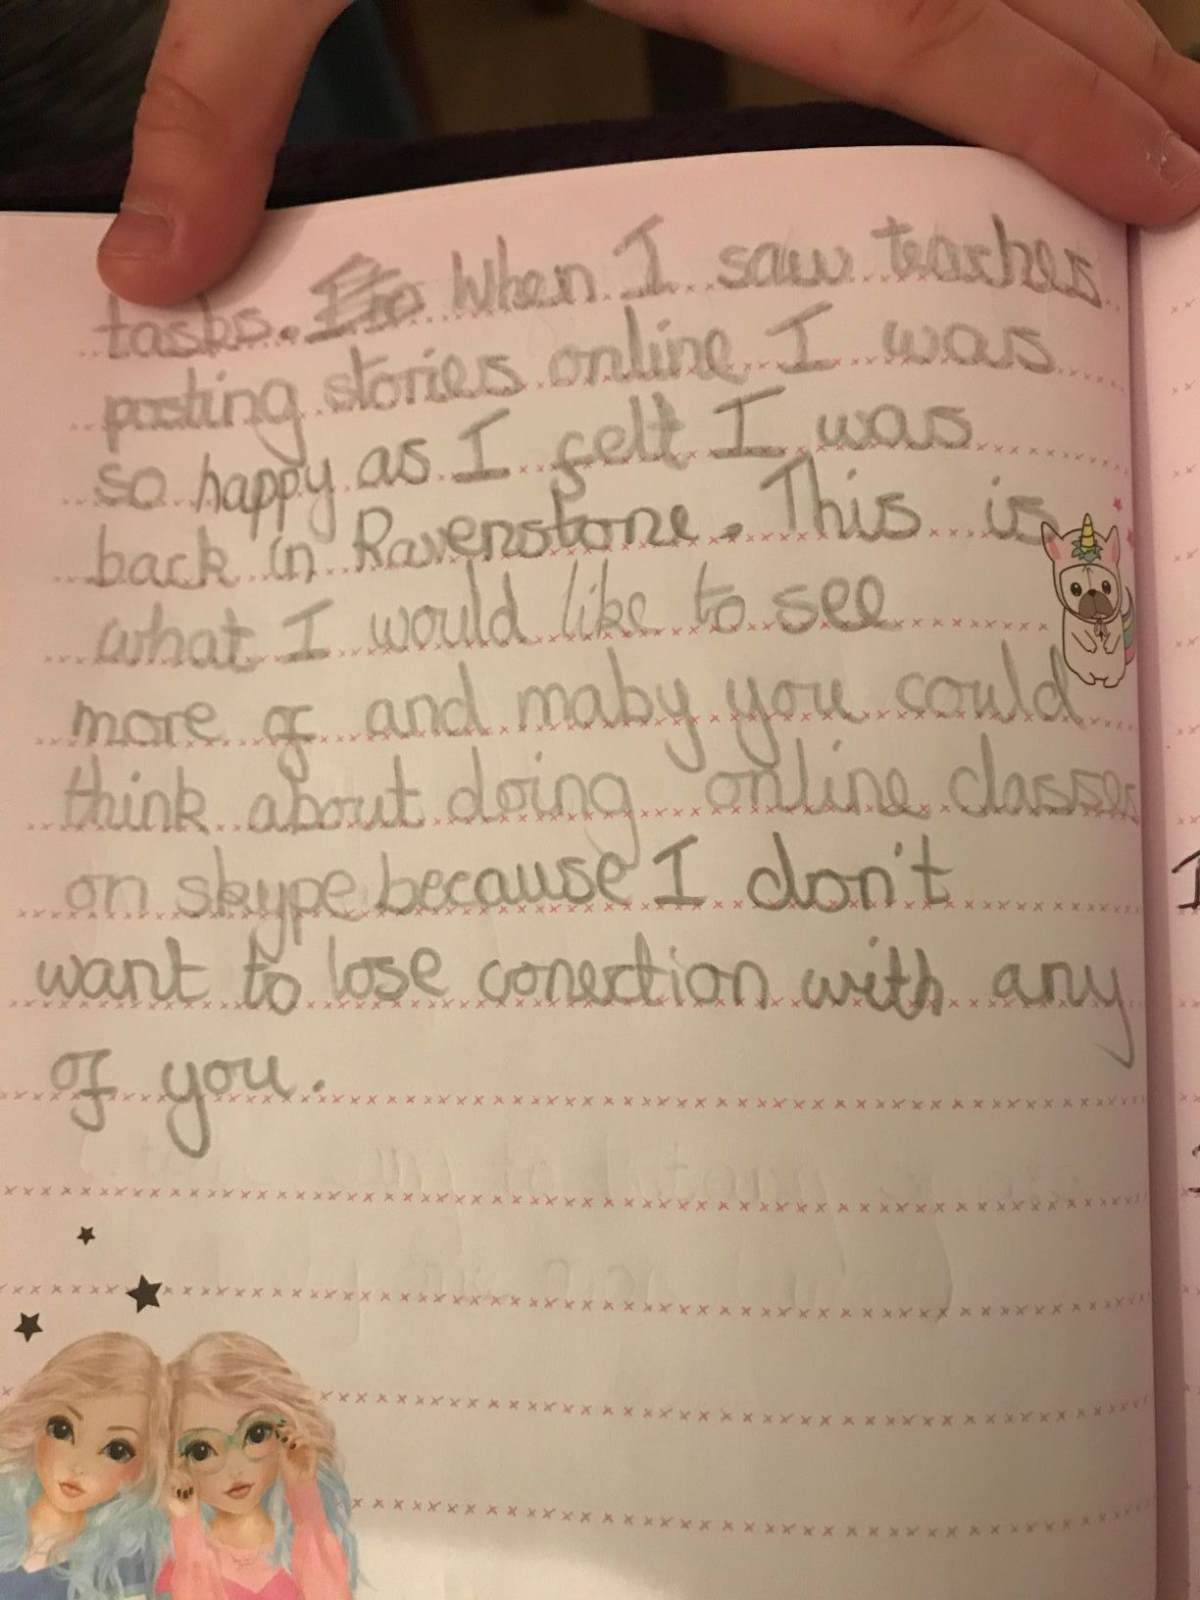 tasks. When I saw teaches
posting stories online I was
so happy as I felt I was
back in Ravenstone. This is
what I would like to see
more of and maby you could
think about doing online classes
on skype because I don't
want to lose conection with any
of you.